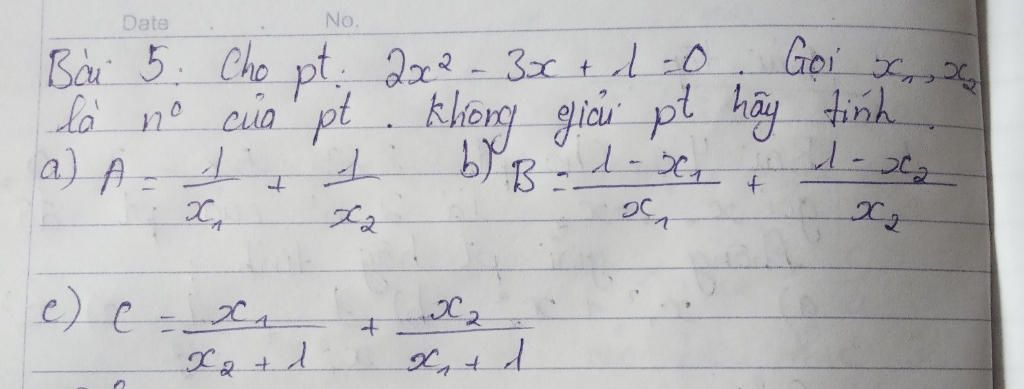 Date No.
Bài 5. Cho pt: 2x² - 3x + 1 = 0. Gọi x₁, x₂
là nº của pt. Không giải pt hãy tính.
a) A = 1/x₁ + 1/x₂ b) B = (1 - x₁)/x₁ + (1 - x₂)/x₂
c) C = x₁/(x₂ + 1) + x₂/(x₁ + 1)